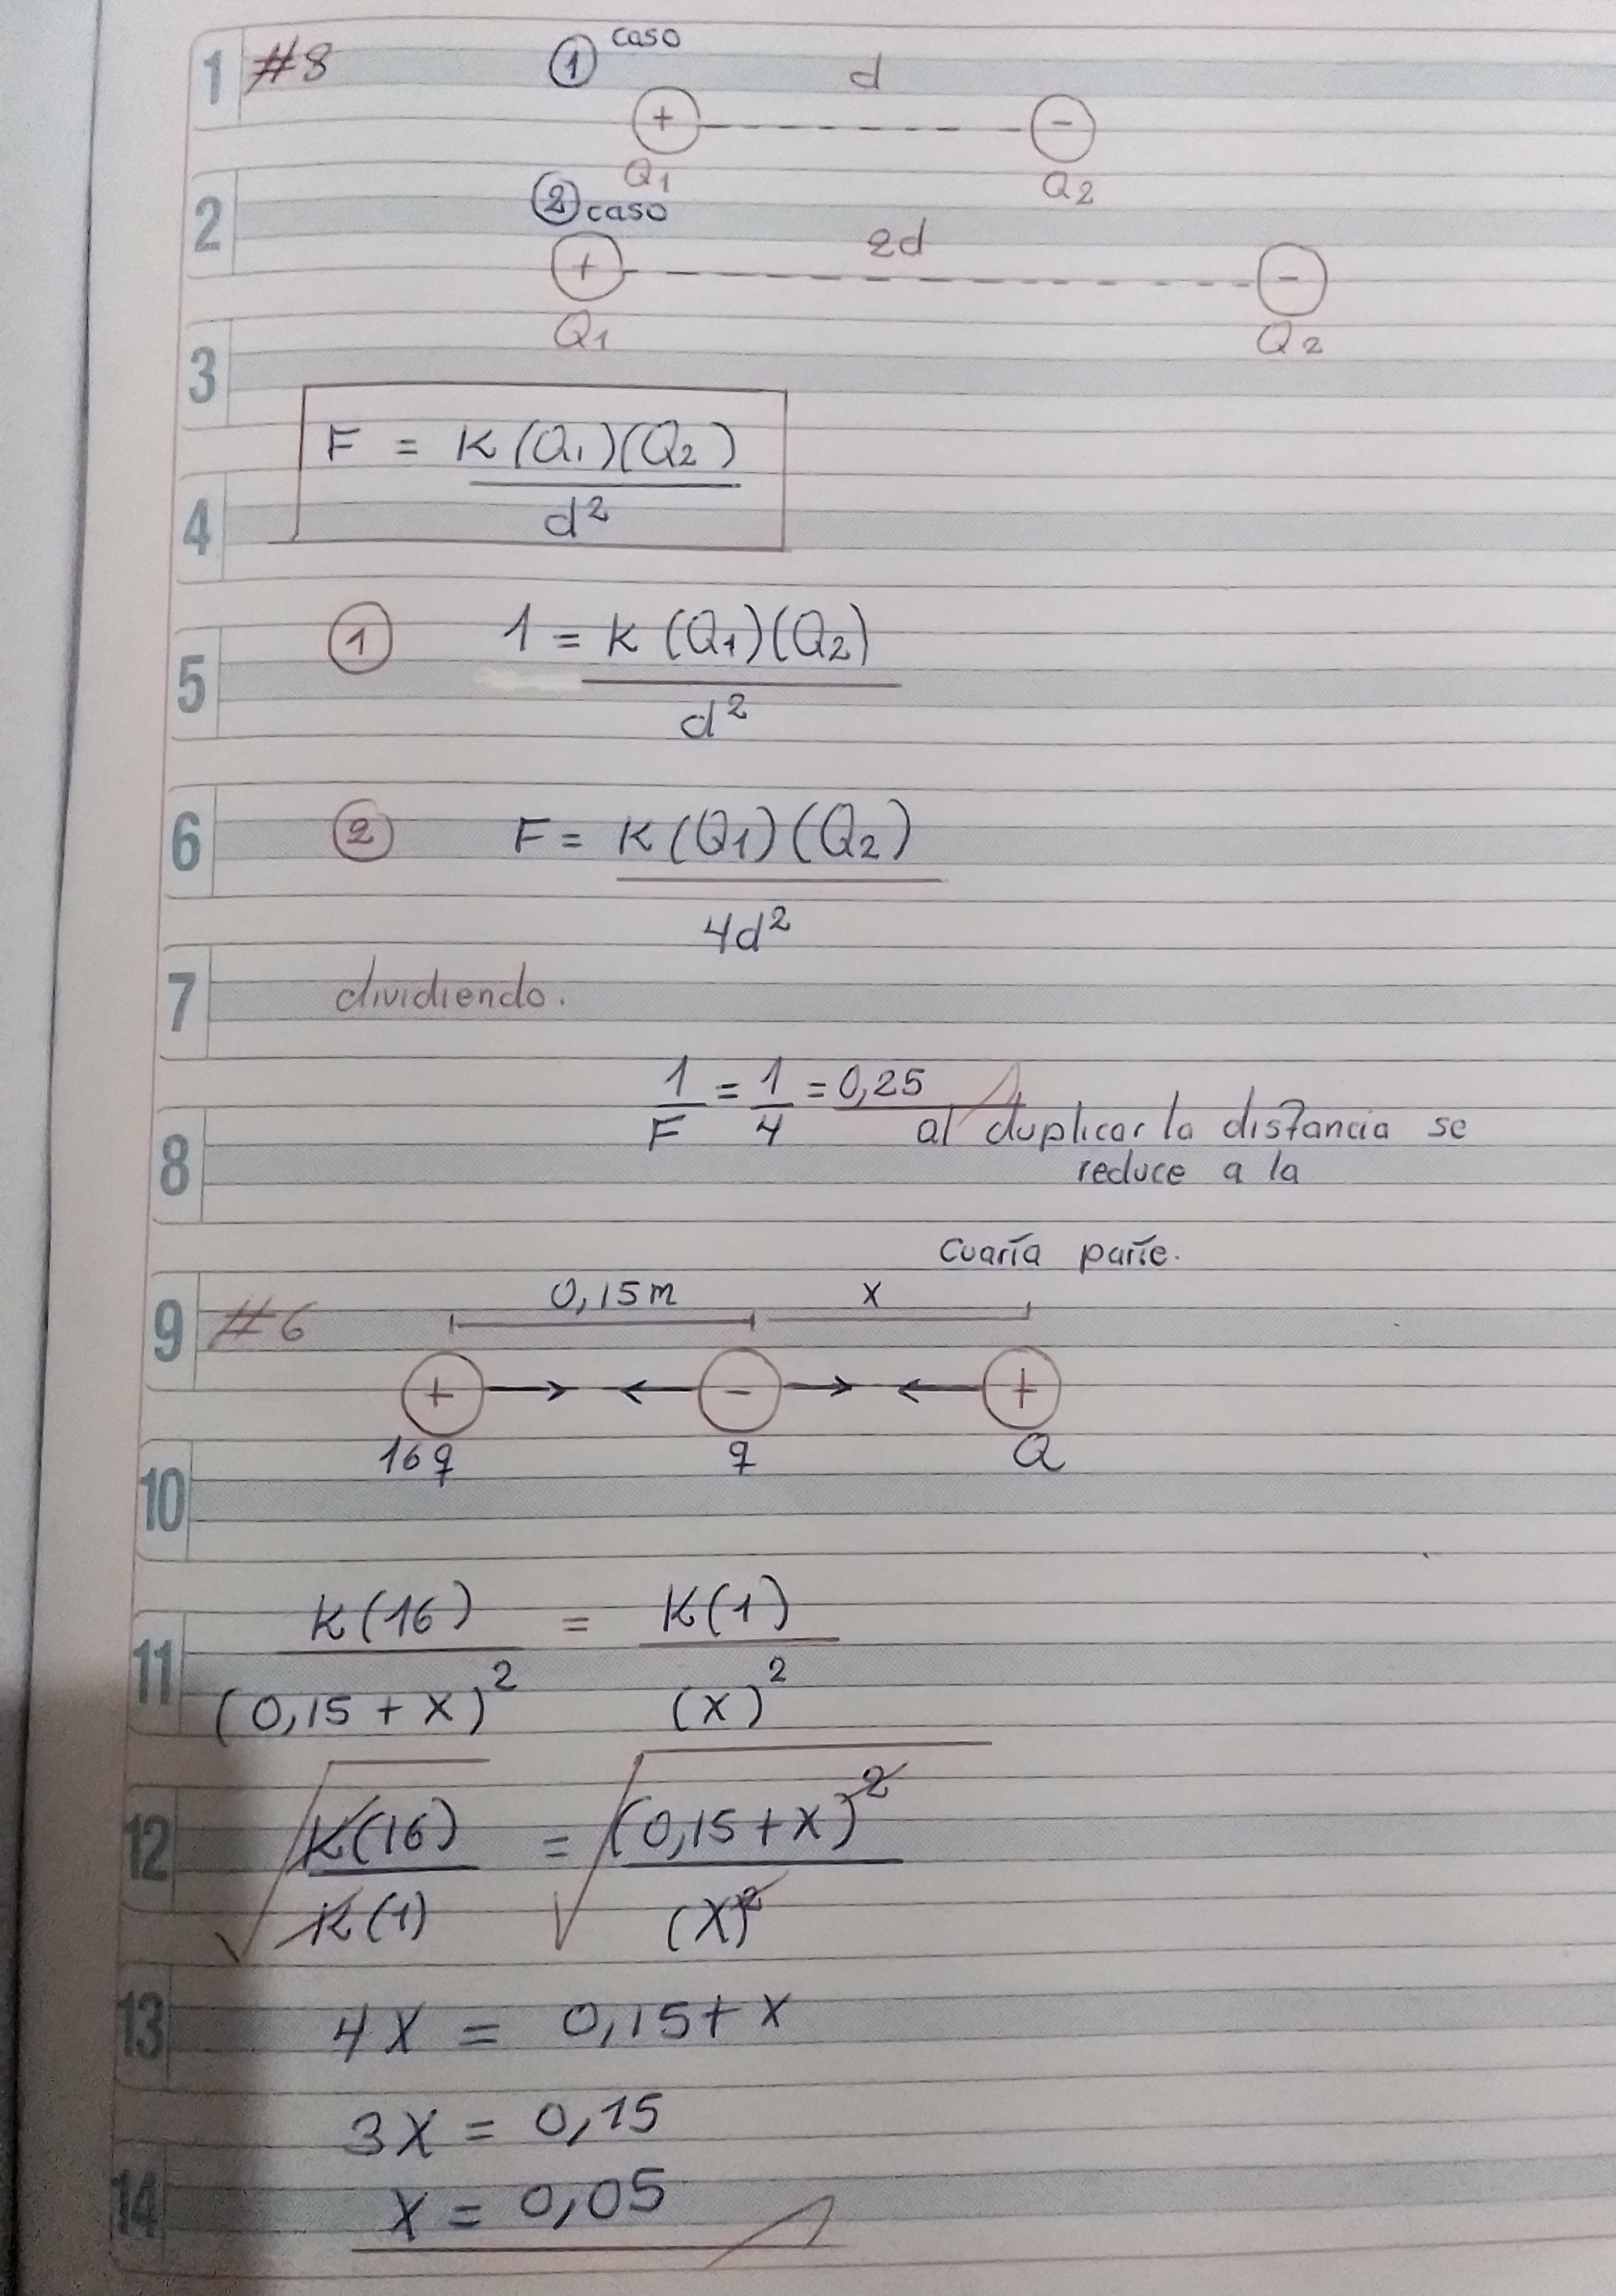 1 #8 ① caso d
+ -
Q1 Q2
2 ② caso 2d
+ -
Q1 Q2
3
F = K(Q1)(Q2)
4 d²
① 1 = K (Q1)(Q2)
5 d²
6 ② F = K(Q1)(Q2)
4d²
7 dividiendo.
1/F = 1/4 = 0,25
8 al duplicar la distancia se
reduce a la
cuarta parte.
0,15m x
9 #6
+ - +
16q q Q
10
K(16) = K(1)
11 (0,15 + x)² (x)²
12 √K(16) = √(0,15+x)²
K(1) (x)²
13 4x = 0,15+x
3x = 0,15
14 x = 0,05